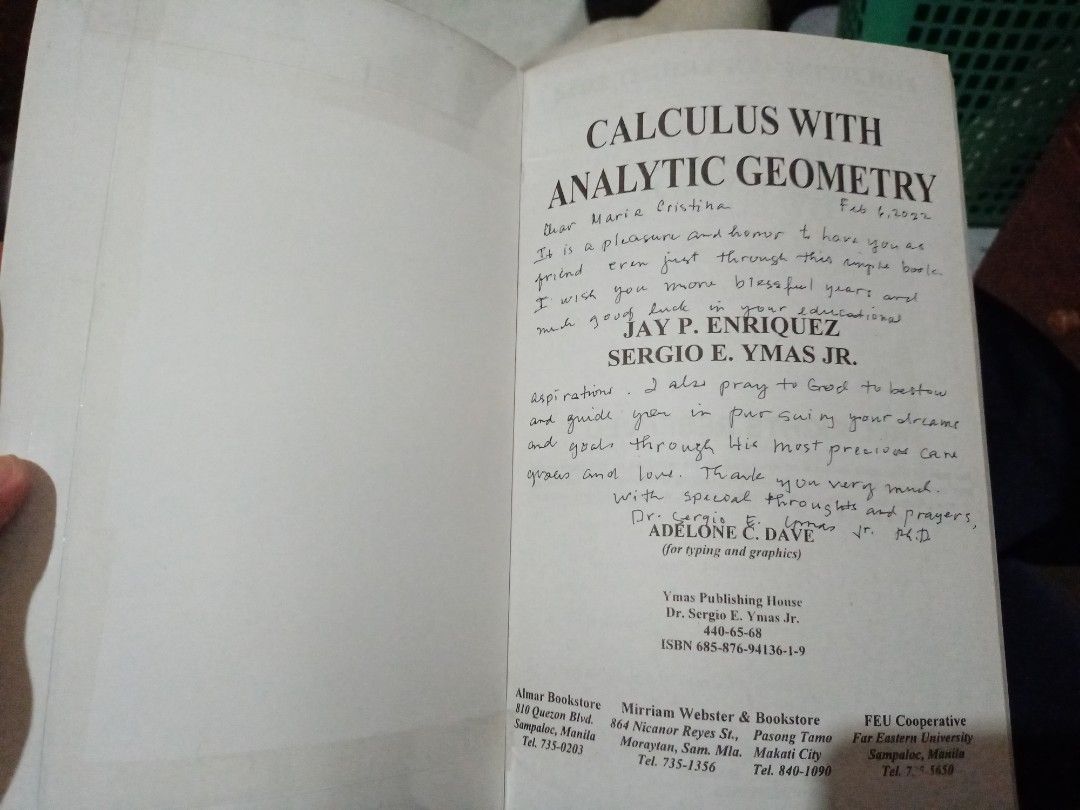 CALCULUS WITH
ANALYTIC GEOMETRY
Dear Maria Cristina Feb 6, 2022
It is a pleasure and honor to have you as
friend even just through this simple book.
I wish you more blessful years and
much good luck in your educational
JAY P. ENRIQUEZ
SERGIO E. YMAS JR.
aspirations. I also pray to God to bestow
and guide you in pursuing your dreams
and goals through His most precious care
graces and love. Thank you very much.
With special throughts and prayers,
Dr. Sergio E. Ymas Jr. Ph.D
ADELONE C. DAVE
(for typing and graphics)
Ymas Publishing House
Dr. Sergio E. Ymas Jr.
440-65-68
ISBN 685-876-94136-1-9
Almar Bookstore
810 Quezon Blvd.
Sampaloc, Manila
Tel. 735-0203
Mirriam Webster & Bookstore
864 Nicanor Reyes St., Pasong Tamo
Moraytan, Sam. Mla. Makati City
Tel. 735-1356 Tel. 840-1090
FEU Cooperative
Far Eastern University
Sampaloc, Manila
Tel.